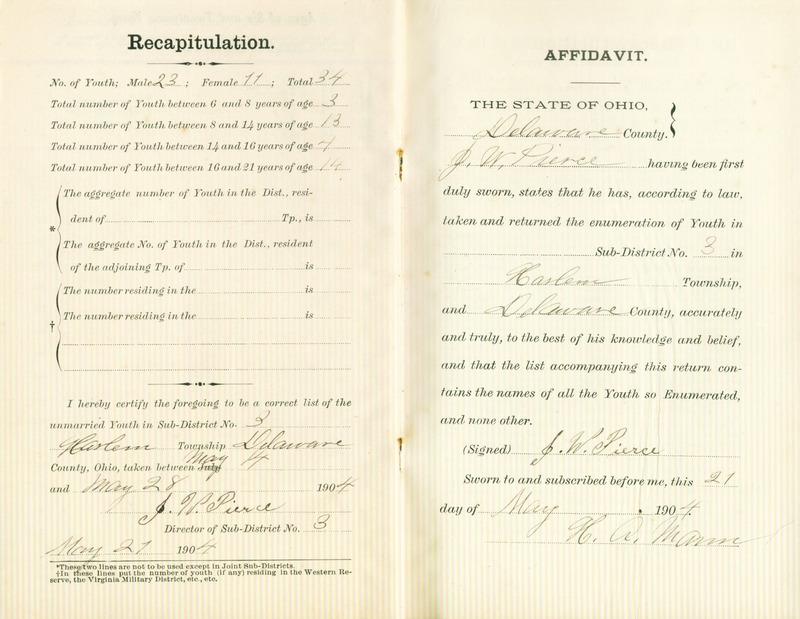 Recapitulation.
No. of Youth; Male 23; Female 11; Total 34
Total number of Youth between 6 and 8 years of age 3
Total number of Youth between 8 and 14 years of age 13
Total number of Youth between 14 and 16 years of age 4
Total number of Youth between 16 and 21 years of age 14
The aggregate number of Youth in the Dist., resi-
dent of Tp., is
*
The aggregate No. of Youth in the Dist., resident
of the adjoining Tp. of is
The number residing in the is
The number residing in the is
†
I hereby certify the foregoing to be a correct list of the
unmarried Youth in Sub-District No. 3
Harlem Township Delaware
County, Ohio, taken between July May 4
and May 28 1904
J. W. Pierce
Director of Sub-District No. 3
May 21 1904
*These two lines are not to be used except in Joint Sub-Districts.
†In these lines put the number of youth (if any) residing in the Western Re-
serve, the Virginia Military District, etc., etc.
AFFIDAVIT.
THE STATE OF OHIO,
Delaware County.
J. W. Pierce having been first
duly sworn, states that he has, according to law,
taken and returned the enumeration of Youth in
Sub-District No. 3 in
Harlem Township,
and Delaware County, accurately
and truly, to the best of his knowledge and belief,
and that the list accompanying this return con-
tains the names of all the Youth so Enumerated,
and none other.
(Signed) J. W. Pierce
Sworn to and subscribed before me, this 21
day of May 1904.
H. A. Mann